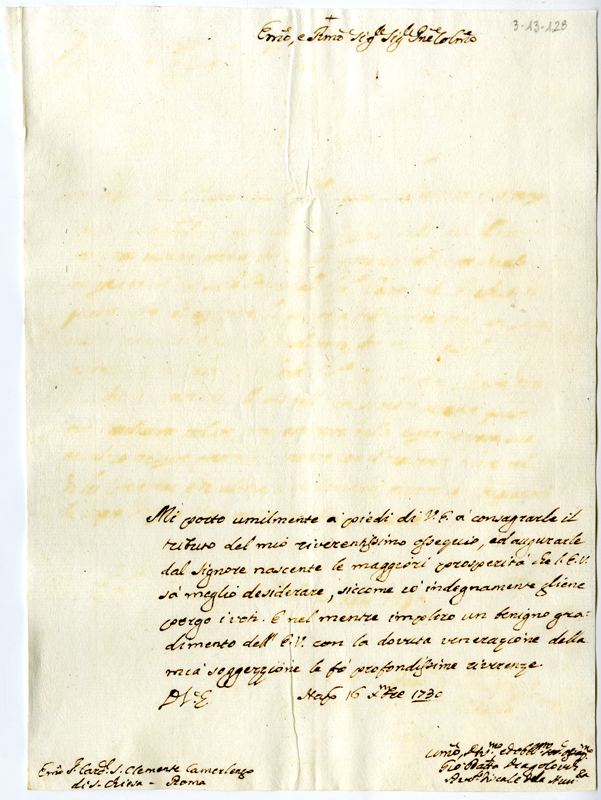 3-13-128
Emo, e Rmo Sigre Sigr Pne Colmo
Mi porto umilmente a' piedi di V. E. à consagrarle il
tributo del mio riverentissimo ossequio, ed augurarle
dal Signore nascente le maggiori prosperità che l'E. V.
sà meglio desiderare, siccome io indegnamente gliene
porgo i voti. E nel mentre imploro un benigno gra-
dimento dell' E. V. con la dovuta venerazione della
mia soggezzione le fò profondissime riverenze.
D V. E. Nap. 16 Xmbre 1730
Emo Sr. Card. S. Clemente Camerlengo
di S. Chiesa - Roma
Umo, Dmo, ed Obmo
Gio: Batta
Avv. Fiscale della Nun.ra